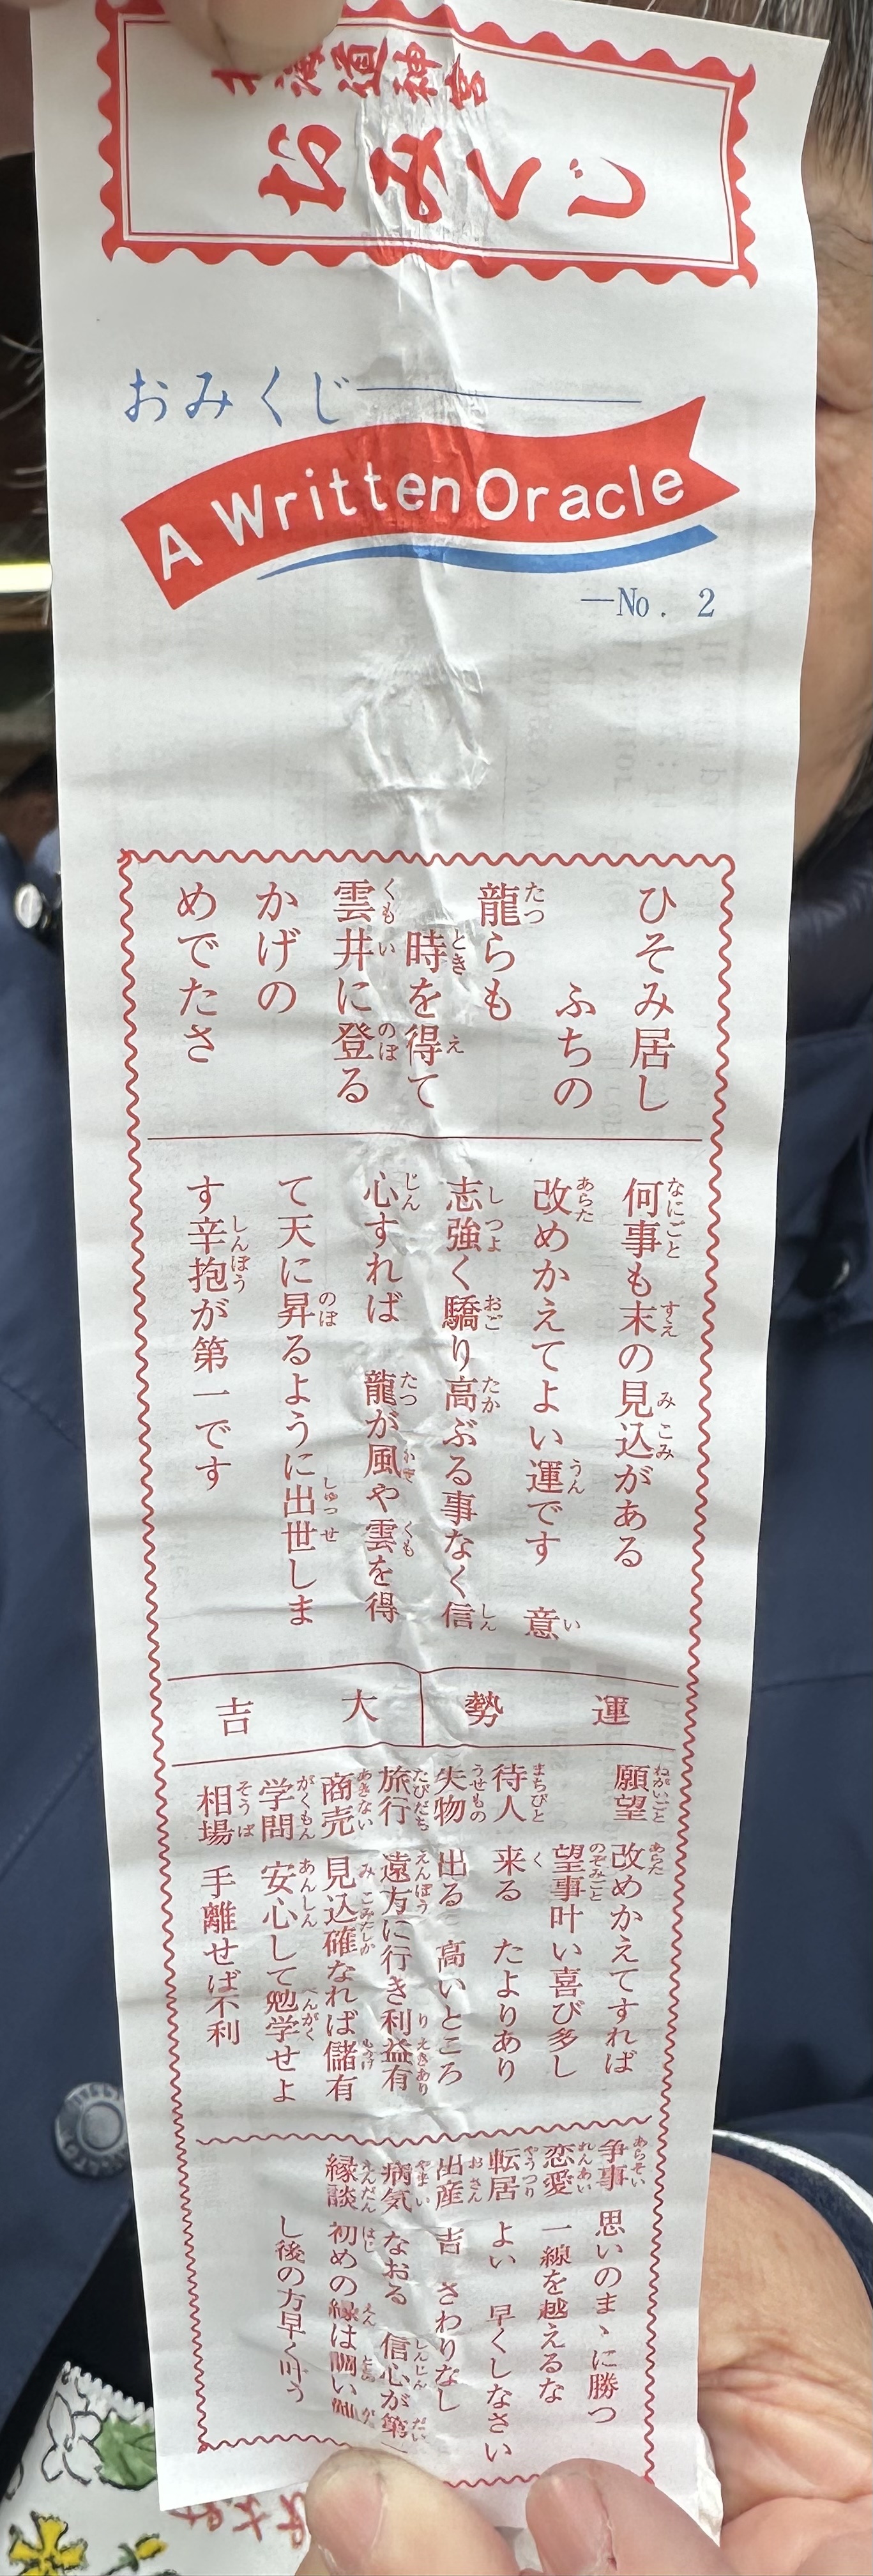 海道神宮
おみくじ
おみくじ
A Written Oracle
—No. 2
ひそみ居し
ふちの
龍らも
時を得て
雲井に登る
かげの
めでたさ
何事も末の見込がある
改めかえてよい運です 意
志強く驕り高ぶる事なく信
心すれば 龍が風や雲を得
て天に昇るように出世しま
す辛抱が第一です
運勢
大吉
願望 改めかえてすれば
望事叶い喜び多し
待人 来る たよりあり
失物 出る 高いところ
旅行 遠方に行き利益有
商売 見込確なれば儲有
学問 安心して勉学せよ
相場 手離せば不利
争事 思いのまゝに勝つ
恋愛 一線を越えるな
転居 よい 早くしなさい
出産 吉 さわりなし
病気 なおる 信心が第一
縁談 初めの縁は調い
し後の方早く叶う